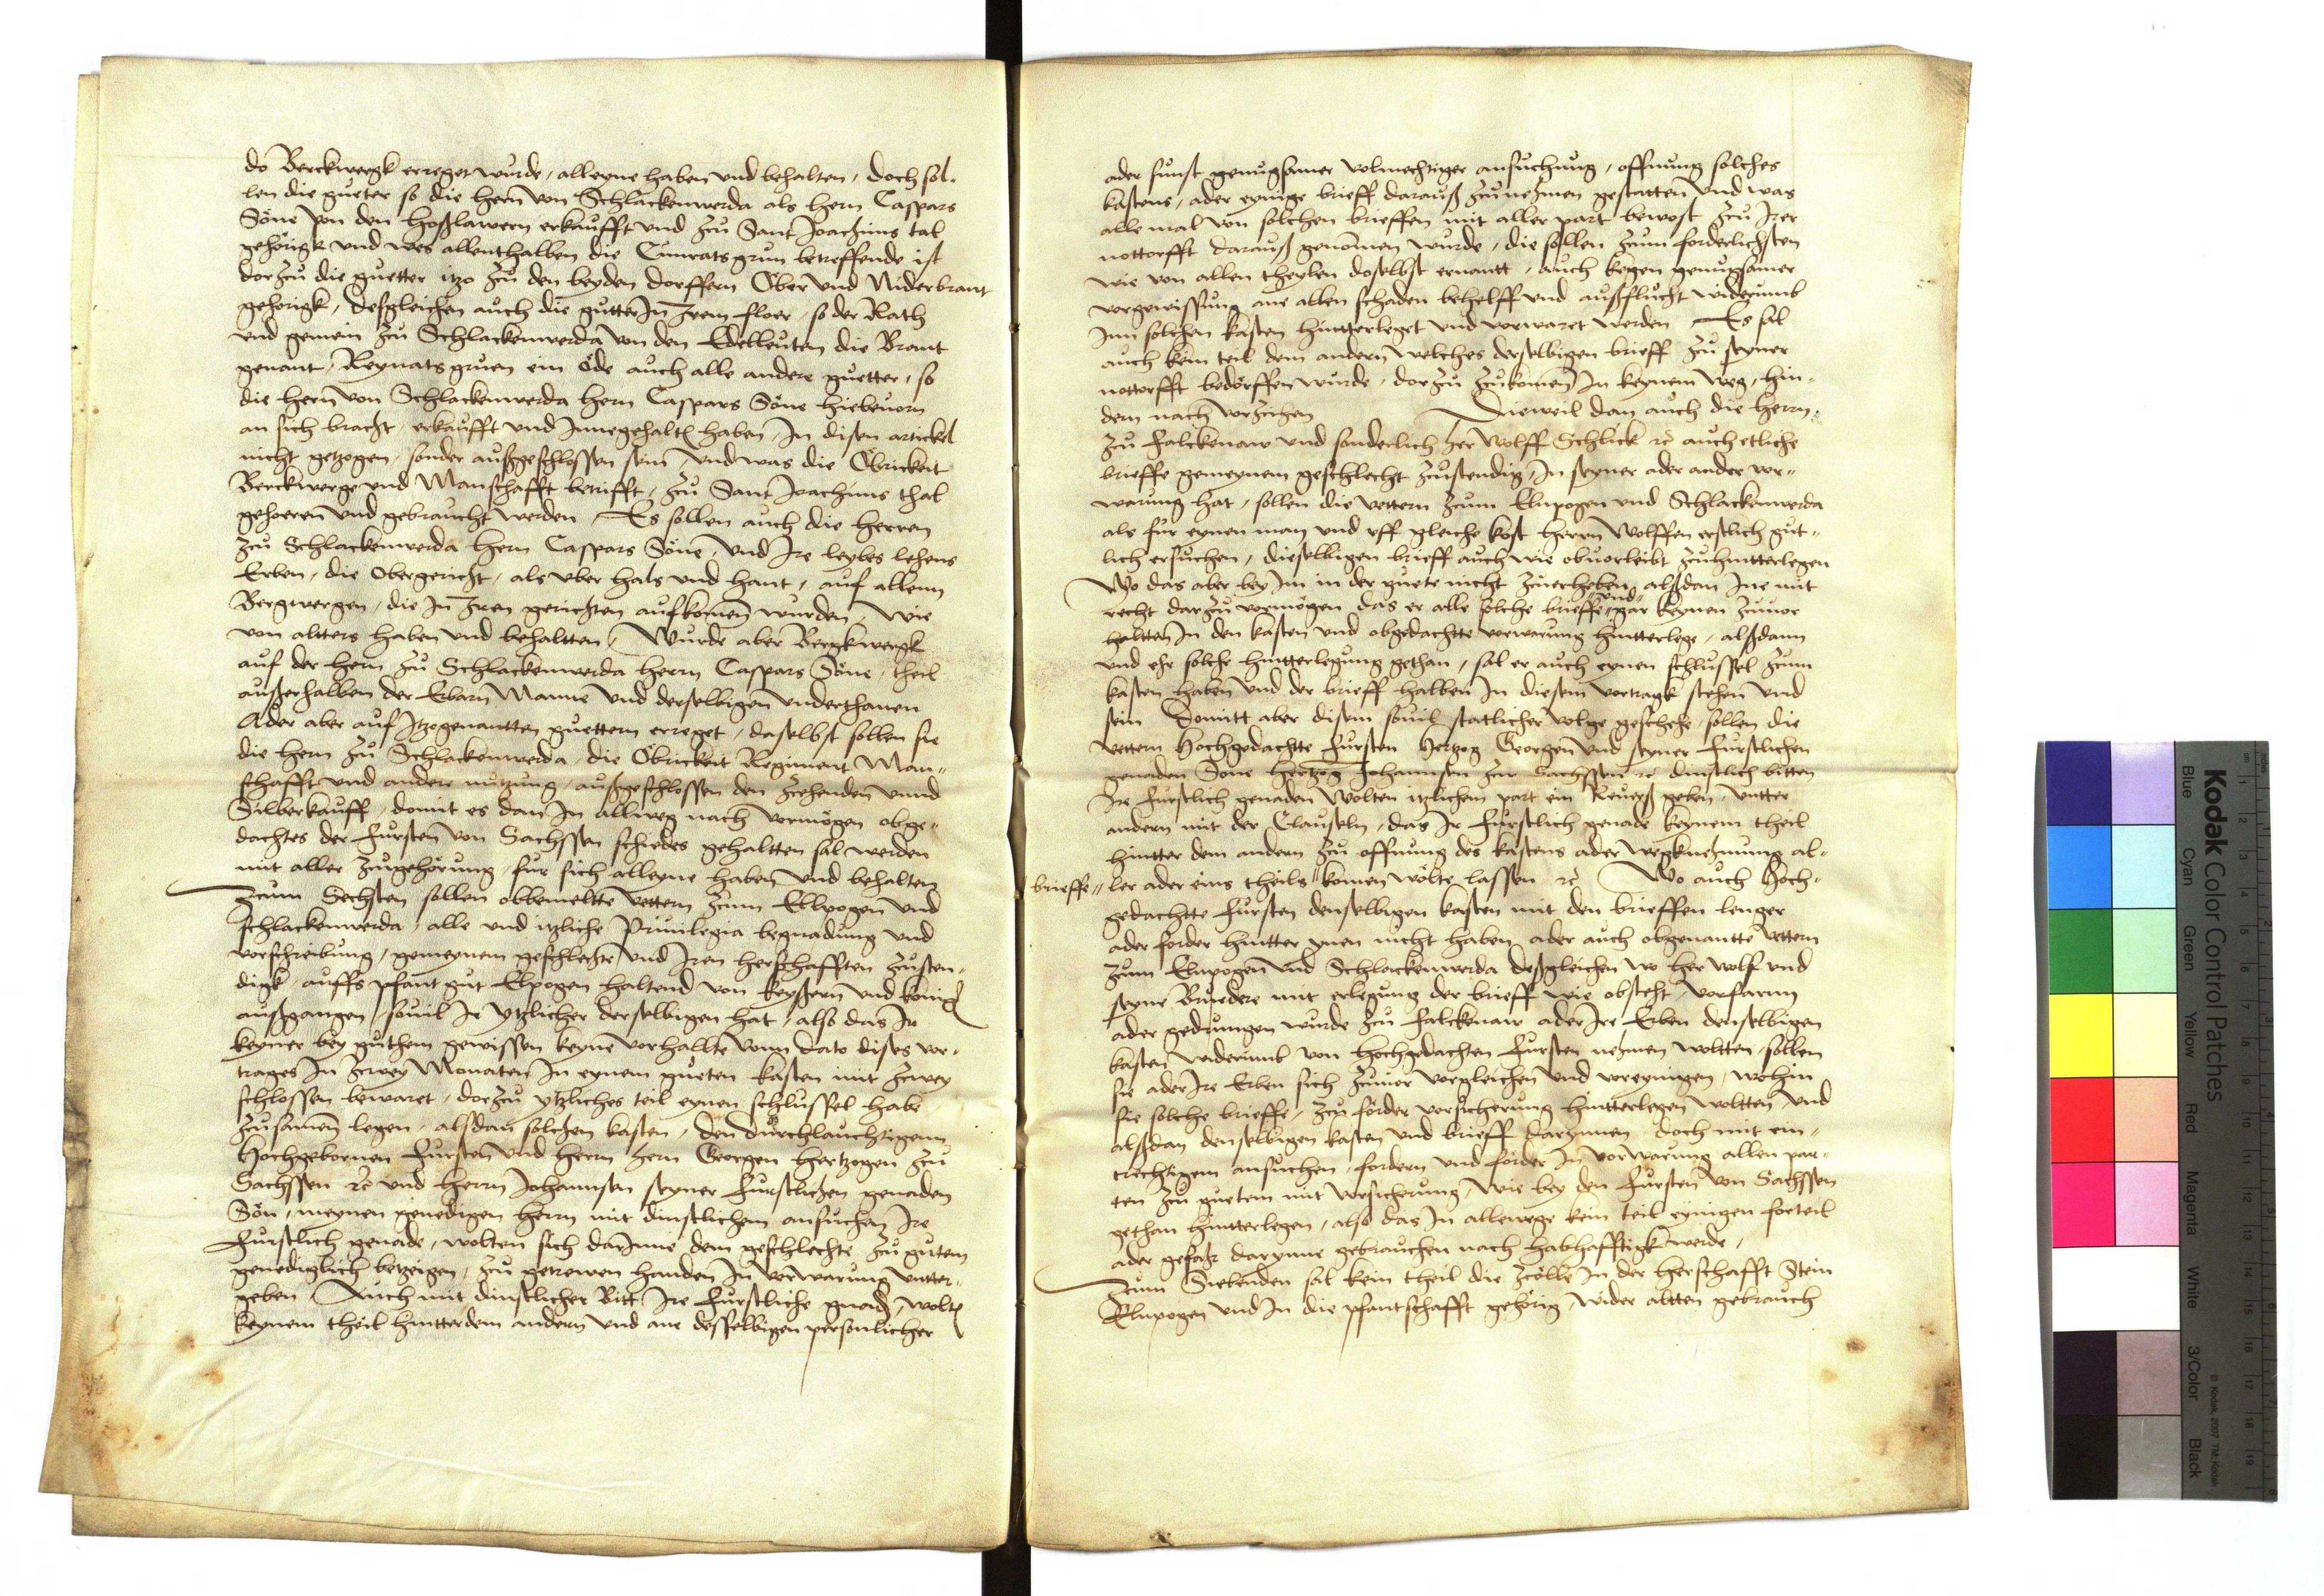 do Berckwergk erreget wurde, alleyne haben und behalten, doch sol-
len die gueter so die hern von Schlackenwerda als hern Caspars
Söne von den Hoßlawern erkaufft und zu Sant Joachims tal
gehörigk und was allenthalben die Cunratsgrun betreffende ist
dorzu die guetter itzo zu den beyden dorffern Ober und Niderbrant
gehorigk, desgleichen auch die gutter In Irem floer, so der Rath
und gemein zu Schlackenwerda von den Edelleuten die Brant
genant, Reynatsgruen ein öde auch alle andere guetter, so
die hern von Schlackenwerda hern Caspars Söne hiebevorn
an sich bracht, erkaufft und Innegehalten haben, In disen artickel
nicht getzogen, sonder außgeschlossen sein, und was die Öbrickeit
Berckwerge und Manschafft betrifft, zu Sant Joachims thal
gehoeren und gebraucht werden, Es sollen auch die Herren
zu Schlackenwerda hern Caspars Söne, und Ire leybes lehens
Erben, die Obergericht, als uber hals und hant, auf allenn
Bergwergen, die In Iren gerichten aufkomen wurden, wie
von altters haben und behaltten, Wurde aber Berckwergk
auf der hern zu Schlackenwerda herrn Caspars Söne, theil
außerhalben der Erbarn Manne und derselbigen underthanen
Ader aber auf Itzogenantten guettern erreget, daselbst sollen sie
die hern zu Schlackenwerda, die Obrickeit Regiment Man-
schafft und andere nutzung, außgeschlossen den Zcehenden unnd
Silberkauff, domit es dan In allweg nach vermögen obge-
dachtes der Fursten von Sachssen schiedes gehaltten sal werden
mit aller Zugehörung, fur sich alleyne haben und behalten
Zcum Sechsten sollen obbemeltte Vettern zum Ellpogen und
schlackenwerda, alle und itzliche Privilegia begnadung und
vorschreibung, gemeynem geschlechte und Iren herschafften zusten-
digk, auffs pfant gut Elpogen haltend von keyßern und konigen
außgangen, souil Ir ytzlicher derselbigen hat, also das Ir
keyner bey guthem gewissen keyne vorhallte Vonn dato dises vor-
trages In zcwey Monaten In eynem gueten kasten mit zcwey
schlossen bewaret, dorzu ytzliches teil eynen schlussel habe
zusamen legen, alsdan solchen kasten, den durchlauchtigenn
Hochgebornen Fursten und herrn hern Georgen hertzogen zu
Sachssen etc und herrn Johannsen seyner Furstlichen genaden
Sön, meynen genedigen herrn mit dinstlichem ansuchen Ire
Furstlich genade, wolten sich darInne dem geschlechte zu gutem
genediglich betzeigen, zu getrewen handen In vorwarung untter-
geben, Auch mit dinstlicher Bitt Ire Furstliche gnade, wolten
keynem theil hintterdem andern und ane desselbigen personlicher
ader sunst genugsamer volmechtiger ansuchung, offnung solches
kastens, ader eynige brieff darauß zunehmen gestatten und was
alle mal von solchen brieffen mit aller part bewost zu Irer
nottorfft darauß genomen wurde, die sollen zum forderlichsten
wie von allen theylen doselbst ernantt, auch kegen genugsamer
vorgewissung ane allen schaden behelff und außflucht widerumb
Inn solchen kasten hintterleget und vorwaret werden Es sal
auch kein teil dem andern welches derselbigen brieff zu seyner
nottorfft bedörffen wurde, dorzu zukomen In keynem weg, hin-
dern nach vorzichen Dieweil dan auch die herrn
zu Falckenaw und sonderlich her Wolff Schlick etc auch etliche
brieffe gemeynem geschlecht zustendig, In seyner ader ander vor-
warung hat, sollen die vettern zum Elnpogen und Schlackenwerda
als fur eynen man und uff gleiche kost herrn Wolffen erstlich gut-
lich ersuchen, dieselbigen brieff auch wie obvorleibt zuhintterlegen
Wo das aber bey Im in der guete nicht zuerheben, alßdan Ine mit
recht darzu vormögen das er alle solche brieffe und gar keynen zuvor
haltten In den kasten und obgedachtte vorwarung hintterlege, alßdann
und ehe solche hintterlegung gethan, sal er auch eynen schlussel zum
kasten haben und der brieff halben In diesem vortragk stehen und
sein Domitt aber disem souil statlicher volge geschehe, sollen die
vettern Hochgedachtte Fursten Hertzog Georgen und seyner Furstlichen
genaden Sone Hertzog Johannsen zu Sachssen etc dinstlich bitten
Ire Furstlich genaden Wolten itzlichem part ein Reverß geben, untter
andern mit der Clauseln, das Ir Furstlich genade keynem theil
hintter dem andern zu offnung des kastens ader wegknehmung al-
brieffe ler ader eins theils komen wolte lassen etc Wo auch Hoch-
gedachtte Fursten denselbigen kasten mit den brieffen lenger
ader forder hintter ynen nicht haben ader auch obgenantte vettern
zum Elnpogen und Schlackenwerda deßgleichen wo her Wolf und
seyne Bruedere mit erlegung der brieff wie obsteht, vorfarnn
ader gedrungen wurde zu Falckenaw ader Ire Erben denselbigen
kasten widerumb von hochgedachten Fursten nehmen woltten, sollen
sie ader Ire Erben sich zuvor vorgleichen und voreynigen, wohin
sie solche brieffe, zu förder vorsicherung hintterlegen woltten, und
alßdan denselbigen kasten und brieff darynnen doch mit ein-
trechtigem ansuchen, fordern und förder In vorwarung allen par-
ten zu guetem mit vorsicherung, wie bey den Fursten von Sachssen
gethan hintterlegen, also das In allewege kein teil eynigen forteil
ader gefahr darynne gebrauchen nach habhafftigk werde,
Zcum Siebenden sal kein theil die Zcölle In der herschafft Stein
Elnpogen und In die pfantschafft gehörig, wider altten gebrauch
Kodak Color Control Patches
© Kodak, 2007 TM: Kodak
Blue Cyan Green Yellow Red Magenta White 3/Color Black